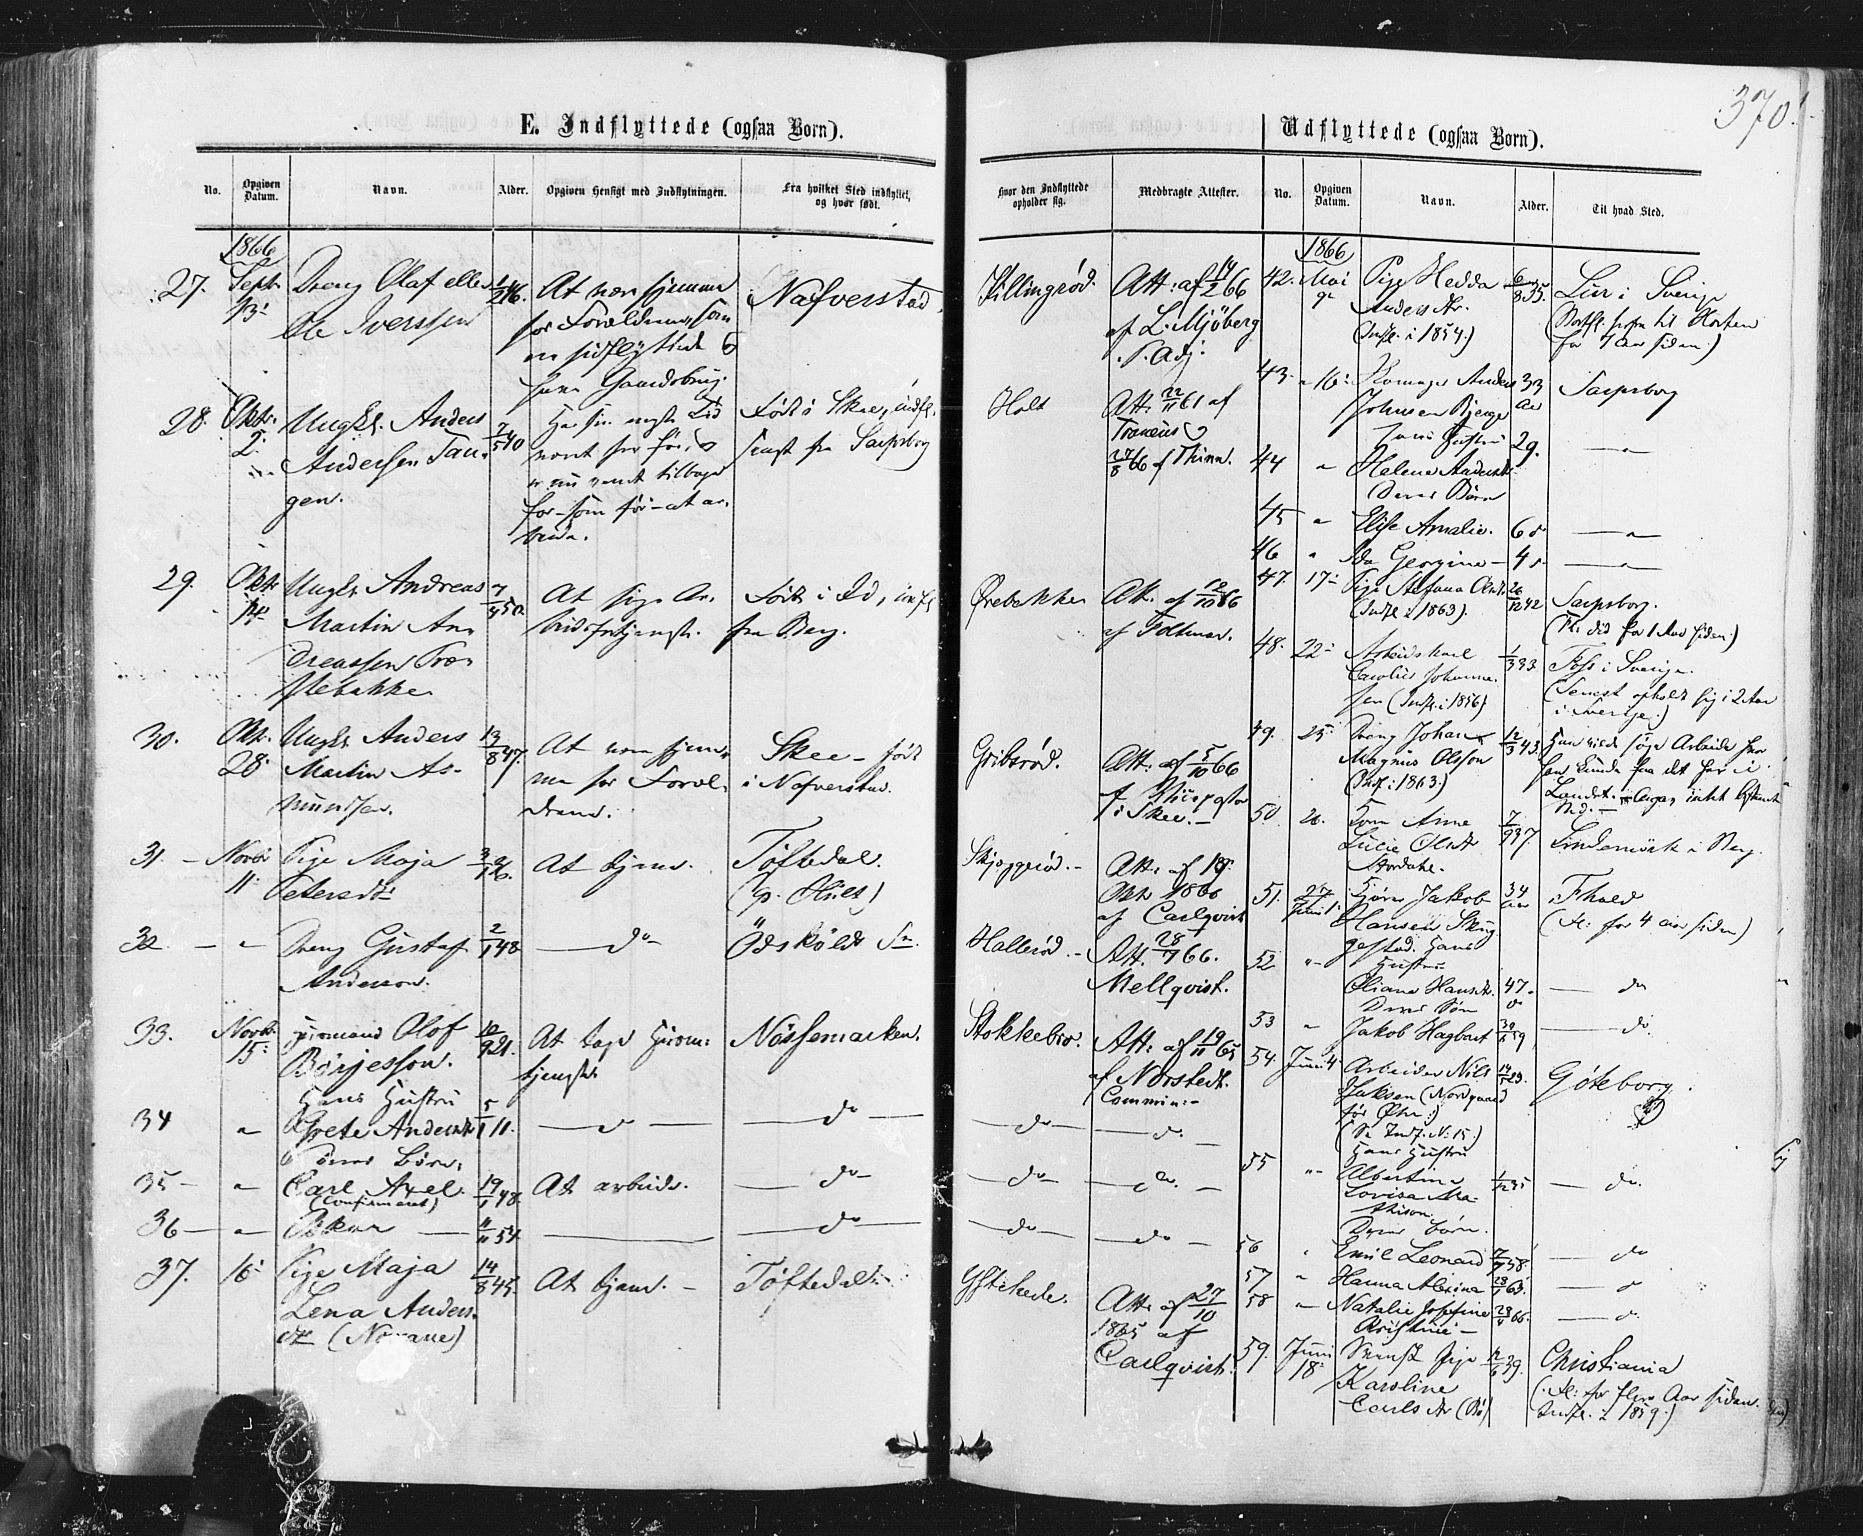 370.
E. Indflyttede (ogsaa Børn).
No.
Opgiven Datum.
Navn.
Alder.
Opgiven Hensigt med Indflytningen.
Fra hvilket Sted indflyttet, og hvor født.
Hvor den Indflyttede opholder sig.
Medbragte Attester.
1866
27. Sept. 13. Dreng Olaf eller
Ole Iverssen
At være hjemme
for Forældrene, som
Nafverstad.
Killingrød.
Att: af 14/2 66
af L. Mjöberg
P. Adj.
28. Oktbr. 2. Ungk. Anders
Andersen Tan-
gen.
7/5 40
Har sin meste Tid
været her før,
er nu vendt tilbage
for - som før - at ar-
beide.
Født i Skee, indfl.
senest fra Sarpsborg
Holt
Att. 22/11 61 af
Traneus
27/8 66 af Thinn.
29. Oktr. 14. Ungk. Andreas
Martin An-
dreassen Træ-
stebakke.
7/4 50.
At søge Ar-
beidsfortjeneste.
Født i Id, indfl.
fra Berg.
Ørebekke
Att. af 12/10 66
af Feltman.
30. Okt. 28. Ungk. Anders
Martin As-
mundsen.
13/8 47.
At være hjem-
me hos Foræl-
drene.
Skee - født
i Nafverstad.
Gribsrød.
Att: af 5/10 66
i Skee. -
31. - Novbr 11. Pige Maja
Petersdt.
At tjene.
Töftedal.
Skjeggerød. -
Att: af 19.
Okt. 1866
af Carlqvist
32. - " Dreng Gustaf
Anderson.
2/1 48.
do
Ödsköldt Sn.
Hallerød. -
Att. 28/7 66.
Mellqvist.
33. Novbr. 15. Huusmand Olof
Börjesson.
10/9 21.
At tage Huusm:
tjeneste.
Nössemarken.
Stokkebro.
Att: af 19/11 65
af Norstedt.
Commin: -
Hans Hustru
34 " Grete Andersdt.
5/1 11.
do
do
do
do.
Deres Børn:
35 - " Carl Axel.
(Confirmeret)
19/1 48.
At arbeide.
do
do
do.
36 - " Oskar
11/11 54
do
do
do
37. 16. Pige Maja
Lena Anders-
dtr (Norane)
14/8 45.
At tjene. -
Töftedal.
Att: af 27/10
1865 af
Carlqvist.
Udflyttede (ogsaa Børn).
No.
Opgiven Datum.
Navn.
Alder.
Til hvad Sted.
1866
42. Mai 9. Pige Hedda
Andersdtr.
(Indfl. i 1854.)
6/8 35.
Lur i Sverige
(Bortfl. herfra til Horten
for 7 aar siden.)
43. " 16. Anders
Johnsen Bjerge
33 Aar
Sarpsborg
Hans Hustru
44 " Helene Andersdt.
29.
"
Deres Børn
45 " Elise Amalie.
6
"
46 " Ida Georgine -
4
"
47. 17. Pige Stefana Olsdt.
(Indfl. i 1863).
26/12 42
Sarpsborg.
(Fl. did for 1 Aar siden.)
48. 22. Arbeidskarl
Carolius Johanne-
sen (Indfl. i 1856)
1/3 33.
Foss i Sverige.
(Senest opholdt sig i 2 Aar
i Sverige.)
49. 25. Dreng Johan
Magnus Olsson
(Indf. i 1863.)
12/3 43.
Han vilde søge Arbeide hvor
han kunde faa det her i
Landet. - Angav intet bestemt
Sted. -
50. 26. Kone Anne
Lucie Olsdt
Aardahl.
7/9 37.
Lindemörk i Berg.
51. 27. Juni 1. Jakob
Hansen Skjg-
gestad.
34 Aar
Fhald
(Fl: for 4 aar siden)
Hans Hustru
52 " Oliana Hansdt.
47.
do
Deres Søn
53 " Jakob Hagbart
30/6 59
do.
54. Juni 4. Arbeider Nils
Jaksen (Nordgaard
før Øhr.)
(Se Indf. No: 15.)
14/5 23.
Göteborg.
Hans Hustru
55 " Albertine
Lovisa Ma-
thison.
1/12 35
do.
Deres børn.
56 " Emil Leonard
7/7 58.
do
57. " Hanna Alexina
28/1 63.
58 " Natalie Josefine
Kristine -
23/4 66.
59. Juni 18. Svensk Pige
Karoline
Carlsdtr (Bø)
12/6 39.
Christiania
(Fl: for flere Aar siden.
Indfl. i 1859.)